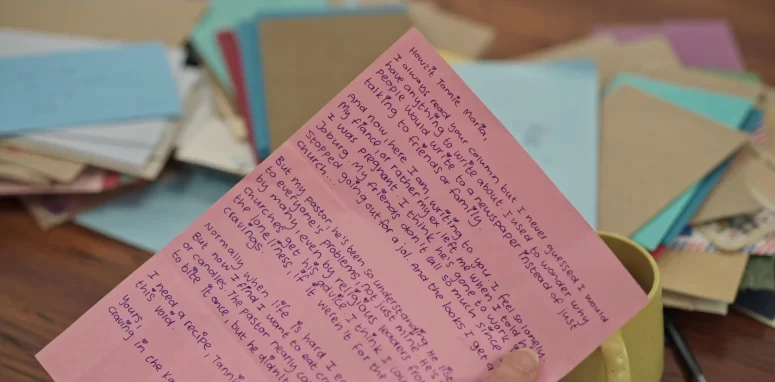 Howzit Tannie Maria,
I always read your column but I never guessed I would
have anything to write about. I used to wonder why
people would write to a newspaper instead of just
talking to friends or family.
And now, here I am, writing to you. I feel so lonely.
My fiance (or rather my ex) left me when I told him
I was pregnant. I think he's gone to work
Joburg. My friends don't call so much since
stopped going out for a jol. And the looks I get a
church...
But my pastor, he's been so understanding. He lis
to everyone's problems, not just mine. He's
by many, even by religious leaders from
churches get his advice. I think I cou
the loneliness, if it weren't for the
cravings.
Normally when life is hard I e
But now I find I want to eat c
or candles. The pastor nearly ca
to bite it once, but he didn't
I need a recipe, Tanni
this void in
Yours,
Craving in the Ka